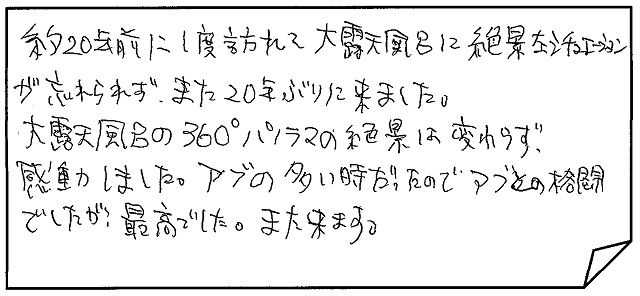 約20年前に1度訪れて大露天風呂に絶景なシチュエーション
が忘れられず、また20年ぶりに来ました。
大露天風呂の360°パノラマの絶景は変わらず、
感動しました。アブの多い時だったのでアブとの格闘
でしたが、最高でした。また来ます。